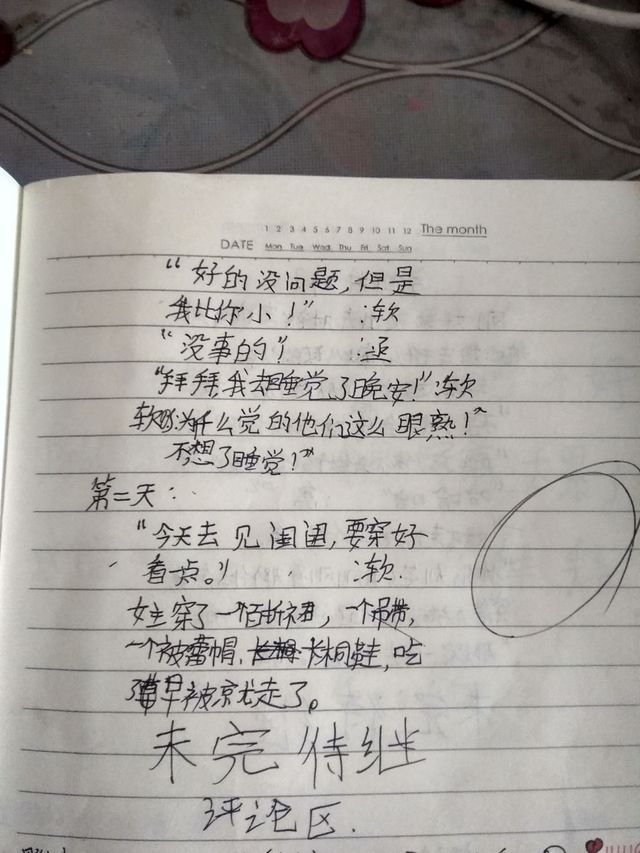 1 2 3 4 5 6 7 8 9 10 11 12 The month
DATE Mon Tue Wed Thu Fri Sat Sun
“好的没问题,但是
我比你小!” :软
“没事的” :逐
“拜拜,我去睡觉了晚安!”:软
软:为什么觉的他们这么眼熟!”
不想了睡觉!”
第二天:
“今天去见闺闺,要穿好
看点。” :软.
女主穿了一个百折裙,一个吊带,
一个被蕾帽,长桐鞋,吃
了早被京尤走了。
未完待继
评论区.